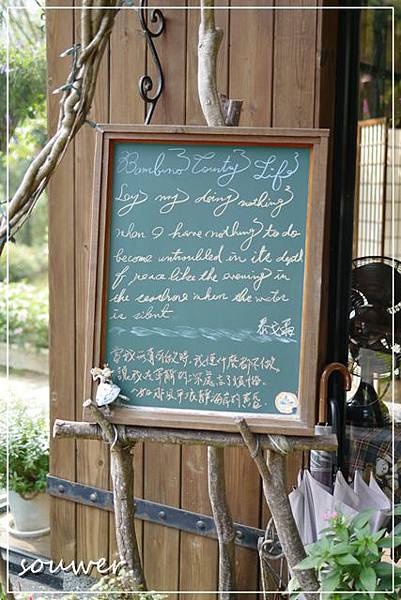 Bambino Country Life
Lay my doing nothing
when I have nothing to do
become untroubled in its depth
of peace like the evening in
the seashore when the water
is silent
泰戈爾
當我無事可做之時,我便什麼都不做,
讓我在寧靜的深處忘了煩惱,
一如海水平靜時海岸的黃昏。
souwer